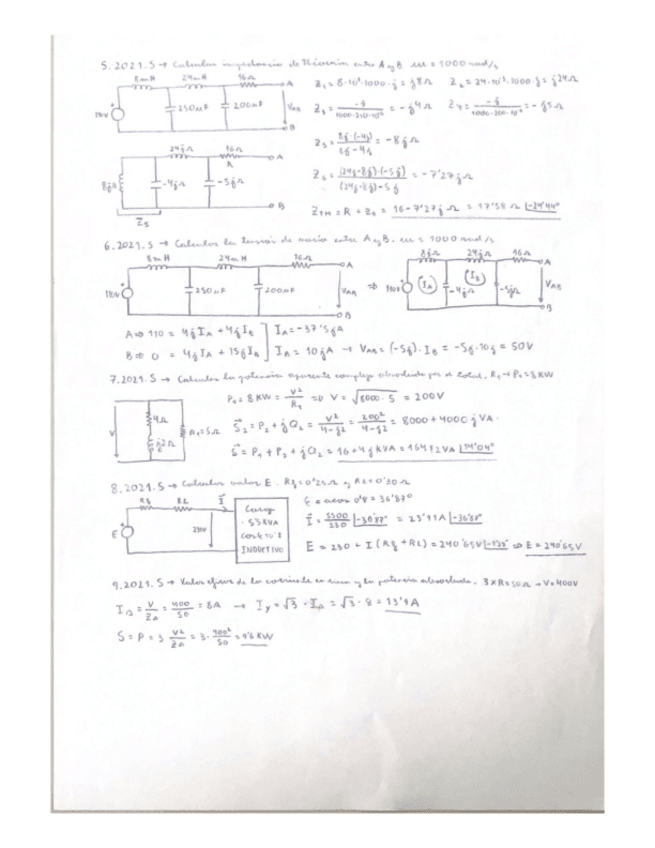 5.2021.S → Calcular impedancia de Thévenin entre A y B. ω = 1000 rad/s
8mH 24mH 16Ω A
110V 250μF 200μF VAB B
Z1 = 8·10⁻³·1000·j = j8Ω Z2 = 24·10⁻³·1000·j = j24Ω
Z3 = -j/1000·250·10⁻⁶ = -j4Ω Z4 = -j/1000·200·10⁻⁶ = -j5Ω
Z5 = 8j·(-4j)/8j-4j = -8jΩ
24jΩ 16Ω A
R
8jΩ -4jΩ -5jΩ B
Z5
Z6 = (j24-8j)·(-5j)/(24j-8j)-5j = -7'27jΩ
ZTH = R + Z6 = 16-7'27jΩ = 17'58Ω |-24'44°
6.2021.S → Calcular la tensión de vacío entre A y B. ω = 1000 rad/s
8mH 24mH 16Ω A
110V 250μF 200μF VAB B
⇒ 8jΩ 24jΩ 16Ω A
110V IA -4jΩ IB -5jΩ VAB B
A⇒ 110 = 4jIA + 4jIB IA = -37'5jA
B⇒ 0 = 4jIA + 15jIB IB = 10jA → VAB = (-5j)·IB = -5j·10j = 50V
7.2021.S → Calcular la potencia aparente compleja absorbida por el total. R1 → P1 = 8KW
P1 = 8KW = V²/R1 ⇒ V = √8000·5 = 200V
V 4Ω j2Ω R1=5Ω
S2 = P2 + jQ2 = V²/4-j2 = 200²/4-j2 = 8000 + 4000jVA.
S = P1 + P2 + jQ2 = 16+4jKVA = 16492VA |14'04°
8.2021.S → Calcular valor E. Rg=0'25Ω y RL=0'30Ω
Rg RL I
E 230V
Carga
5'5KVA
cosφ=0'8
INDUCTIVO
φ = acos 0'8 = 36'87°
I = 5500/230 |-36'87° = 23'91A |-36'87°
E = 230 + I(Rg+RL) = 240'65V ⇒ E = 240'65V
9.2021.S → Valor eficaz de la corriente en línea y la potencia absorbida. 3xR=50Ω → V=400V
IΔ = V/ZΔ = 400/50 = 8A → IY = √3·IΔ = √3·8 = 13'9A
S = P = 3 V²/ZΔ = 3·400²/50 = 9'6KW